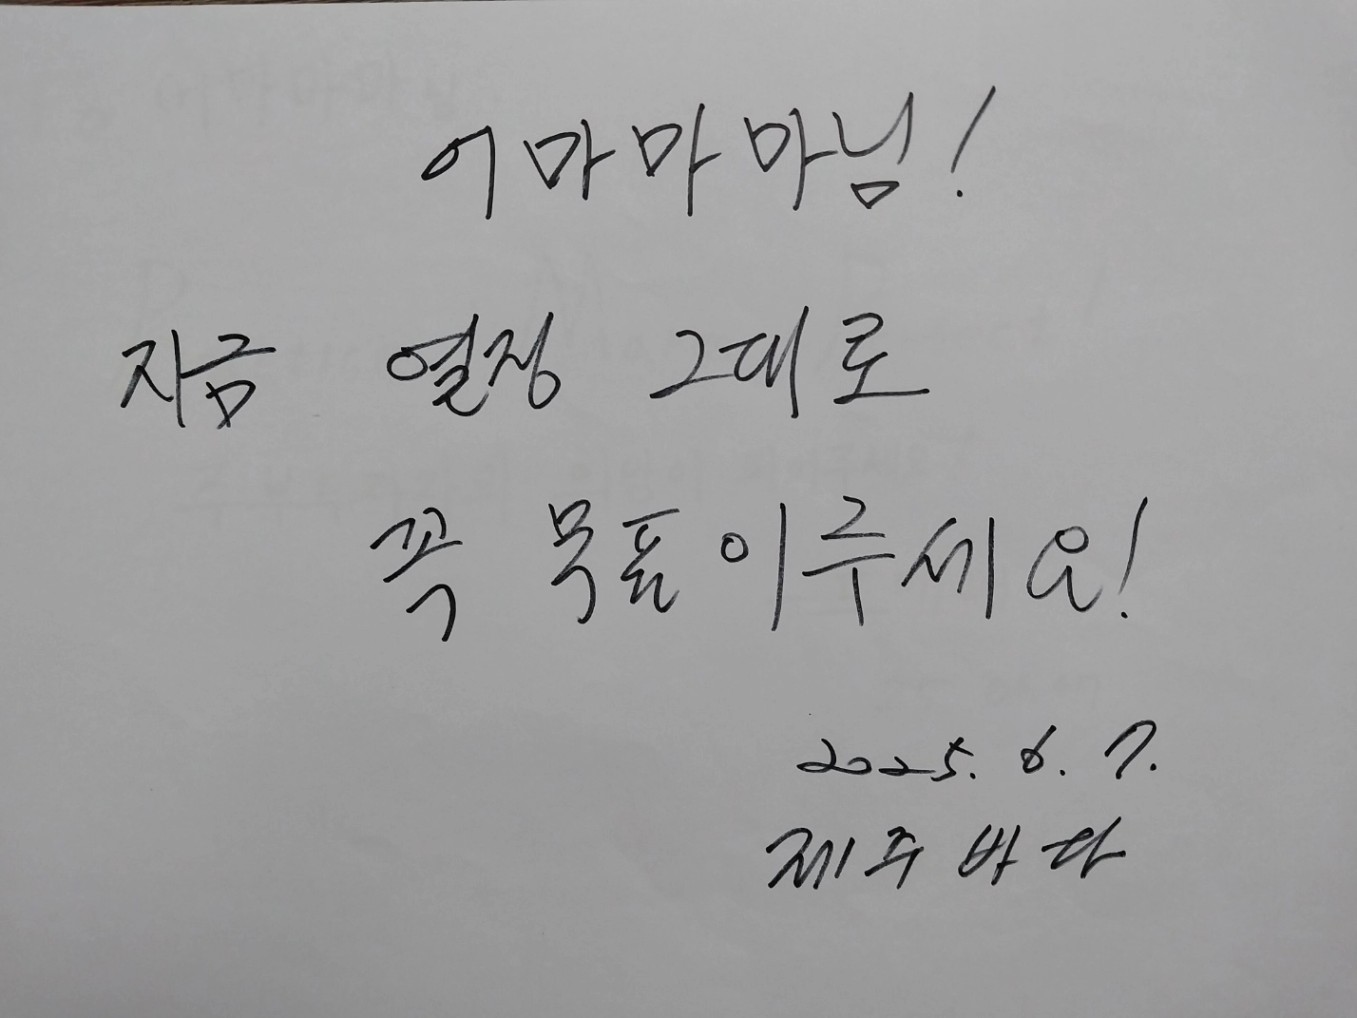 어마마마님!
지금 열정 그대로
꼭 목표 이루세요!
2025. 6. 7.
제주바다